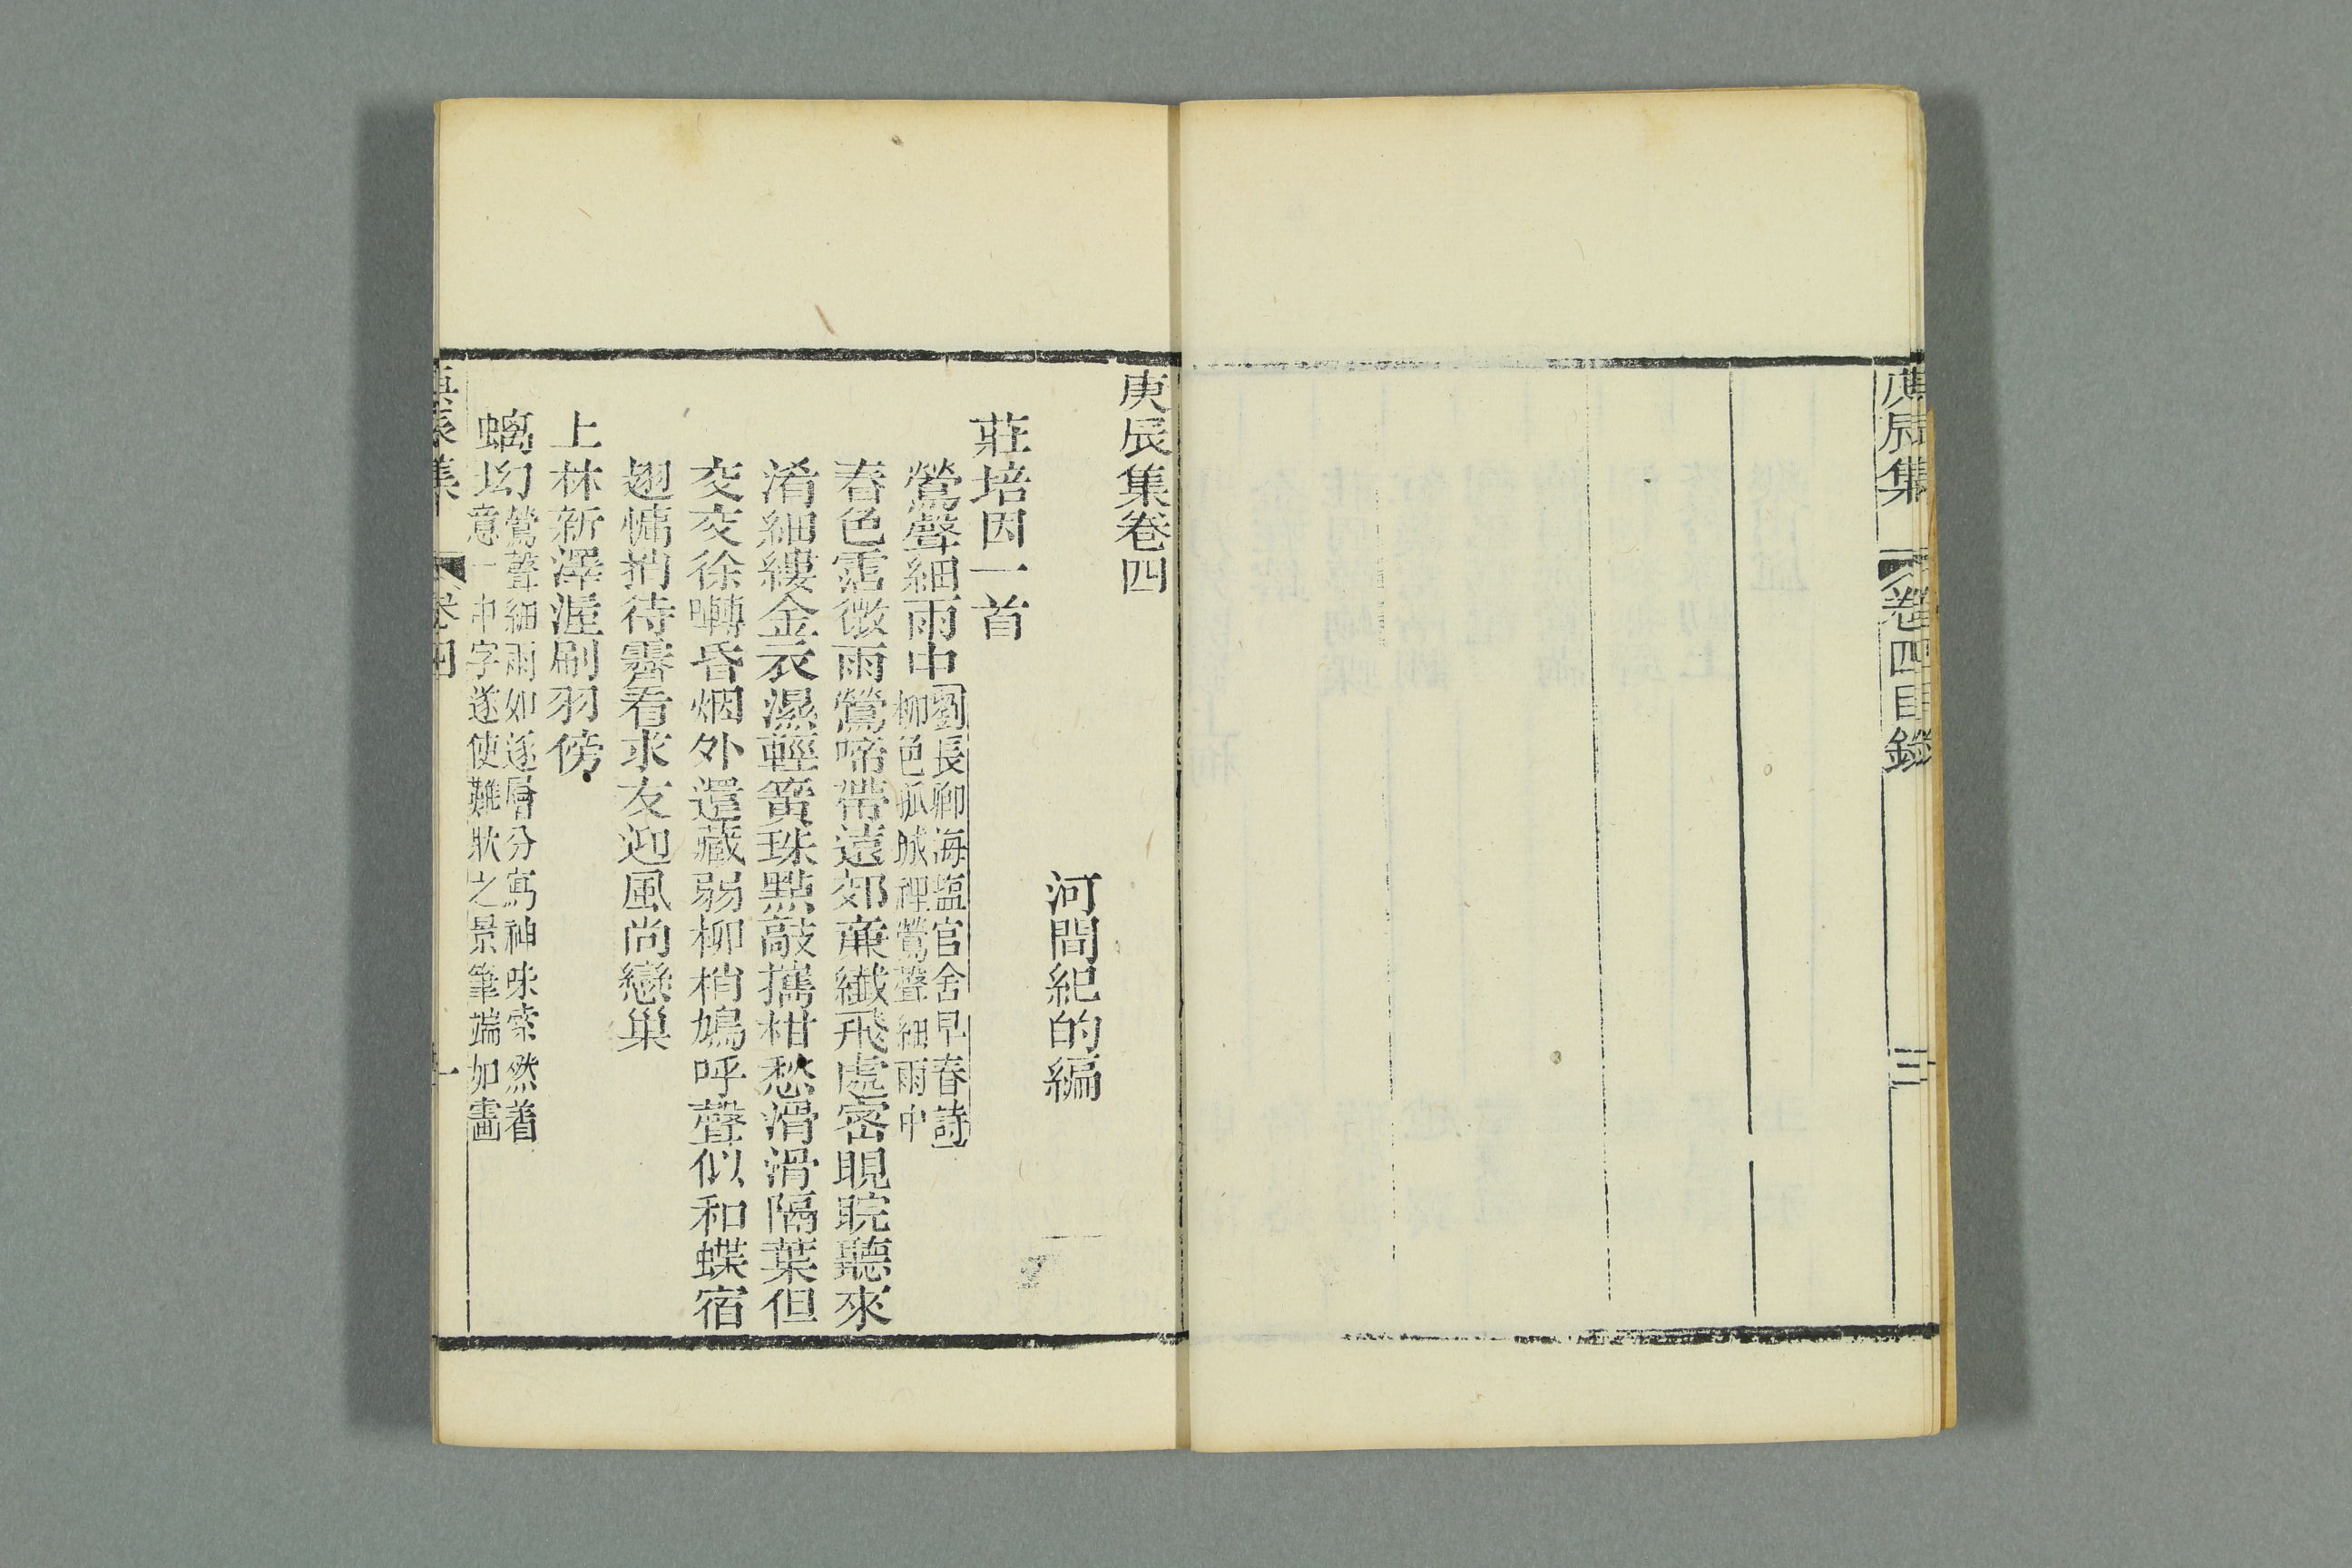 庚辰集
卷四目錄
三
庚辰集卷四
河間紀昀編
莊培因一首
鶯聲細雨中
劉長卿海鹽官舍早春詩
柳色孤城裡鶯聲細雨中
春色霑微雨鶯啼帶遠郊兼纖飛處密睍睆聽來
淆細縷金衣濕輕簧珠點敲攜柑愁滑滑隔葉但
交交徐囀昏烟外還藏弱柳梢鳩呼聲似和蝶宿
翅慵捎待霽看求友迎風尚戀巢
上林新澤渥刷羽傍
螭坳
鶯聲細雨如逐層分寫神味索然着
意一中字遂使難狀之景筆端如畫
庚辰集
卷四
一